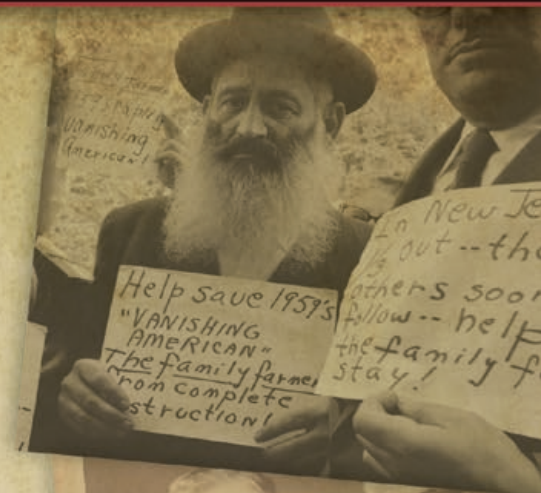 Family Farmer
Vanishing
American!
Help save 1959's
"VANISHING
AMERICAN"
The family farmer
from complete
struction!
In New Je
is out -- the
others soon
follow -- help
the family f
stay!